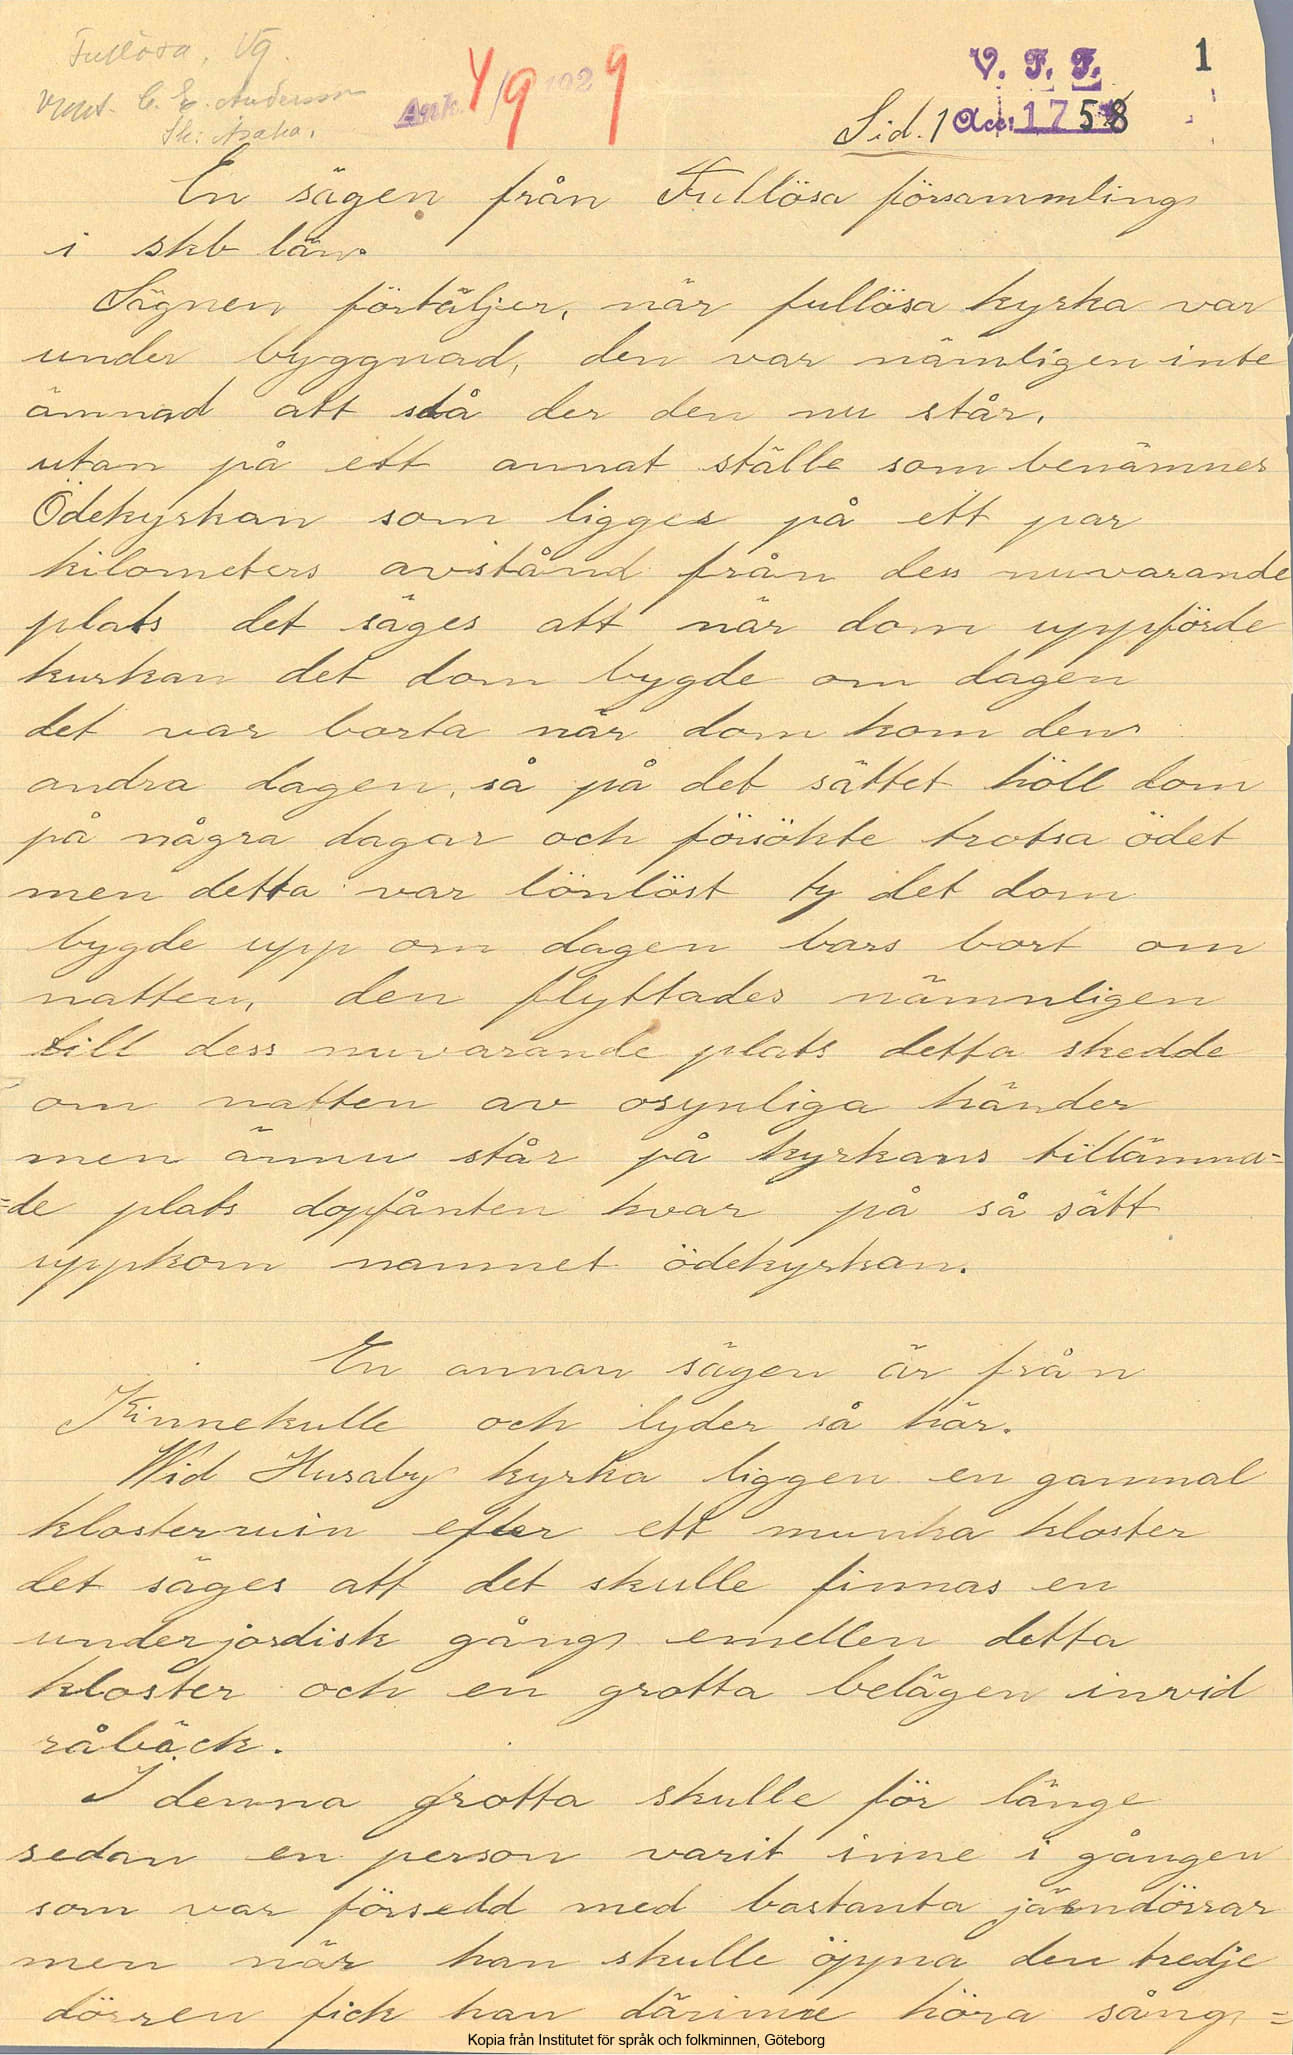 Fullösa, Vg.
Uppt. C. E. Andersson
Sk: Åsaka.
Ank. 4/9 1929
V. F. F.
1
Sid. 1 Acc: 1758
En sägen från Fullösa försammling
i skb län.
Sägnen förtäljer, när fullösa kyrka var
under byggnad, den var nämligen inte
ämnad att stå der den nu står,
utan på ett annat ställe som benämnes
Ödekyrkan som ligger på ett par
kilometers avistånd från dess nuvarande
plats det säges att när dom uppförde
kurkan det dom bygde om dagen
det var borta när dom kom den
andra dagen, så på det sättet höll dom
på några dagar och försökte trotsa ödet
men detta var lönlöst ty det dom
bygde upp om dagen bars bort om
natten, den flyttades nämnligen
till dess nuvarande plats detta skedde
om natten av osynliga händer
men ännu står på kyrkans tillämna=
=de plats dopfånten kvar på så sätt
uppkom namnet ödekyrkan.
En annan sägen är från
Kinnekulle och lyder så här.
Wid Husaby kyrka liggen en gammal
klosterruin efter ett munka kloster
det säges att det skulle finnas en
underjordisk gång emellen detta
kloster och en grotta belägen invid
råbäck.
I denna grotta skulle för länge
sedan en person varit inne i gången
som var försedd med bastanta järndörrar
men när han skulle öppna den tredje
dörren fick han därinne höra sång=
Kopia från Institutet för språk och folkminnen, Göteborg